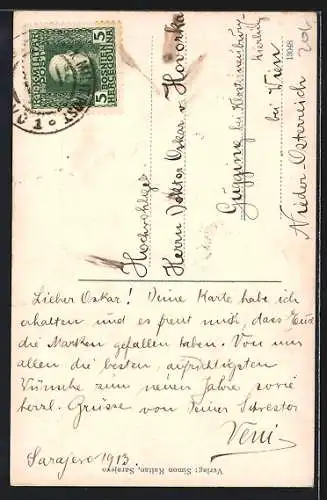 Lieber Oskar! Deine Karte habe ich
erhalten und es freut mich, dass Euch
die Marken gefallen haben. Von uns
allen die besten, aufrichtigsten
Wünsche zum neuen Jahre sowie
herzl. Grüsse von Deiner Schwester
Veni
Sarajevo 1913.
Verlag: Simon Kattan, Sarajevo
Hochwohlgeb.
Herrn Doktor Oskar v. Hovorka
Gugging bei Klosterneuburg-
Kierling
bei Wien
Nieder-Österreich
13048
5 5
BOSNIEN
HERCEGOVINA